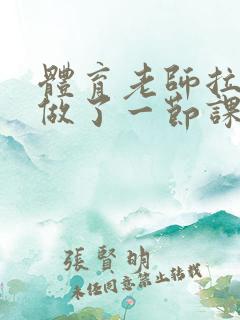 體育老師拉
做了一節課
張賢明
未任同意禁止转载